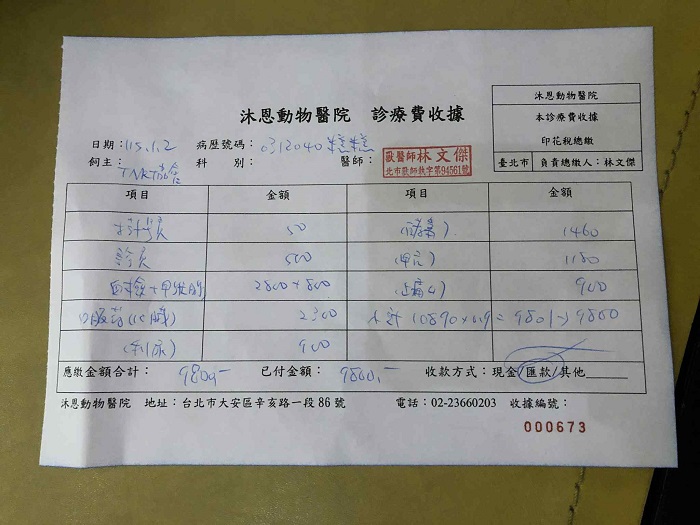 沐恩動物醫院 診療費收據
沐恩動物醫院
本診療費收據
印花稅總繳
臺北市 負責總繳人:林文傑
日期:115.1.2 病歷號碼:0312040 糕糕
飼主:TNR協會 科 別: 醫師:
獸醫師林文傑
北市獸師執字第94561號
項目 金額 項目 金額
掛號 50 1460
診費 500 (甲亢) 1180
血檢+甲狀腺 2800+800 (止痛) 900
口服藥(心臟) 2300 小計 10890×0.9=9801→9800
(利尿) 900
應繳金額合計:9800- 已付金額:9800.- 收款方式:現金/匯款/其他
沐恩動物醫院 地址:台北市大安區辛亥路一段86號 電話:02-23660203 收據編號:
000673